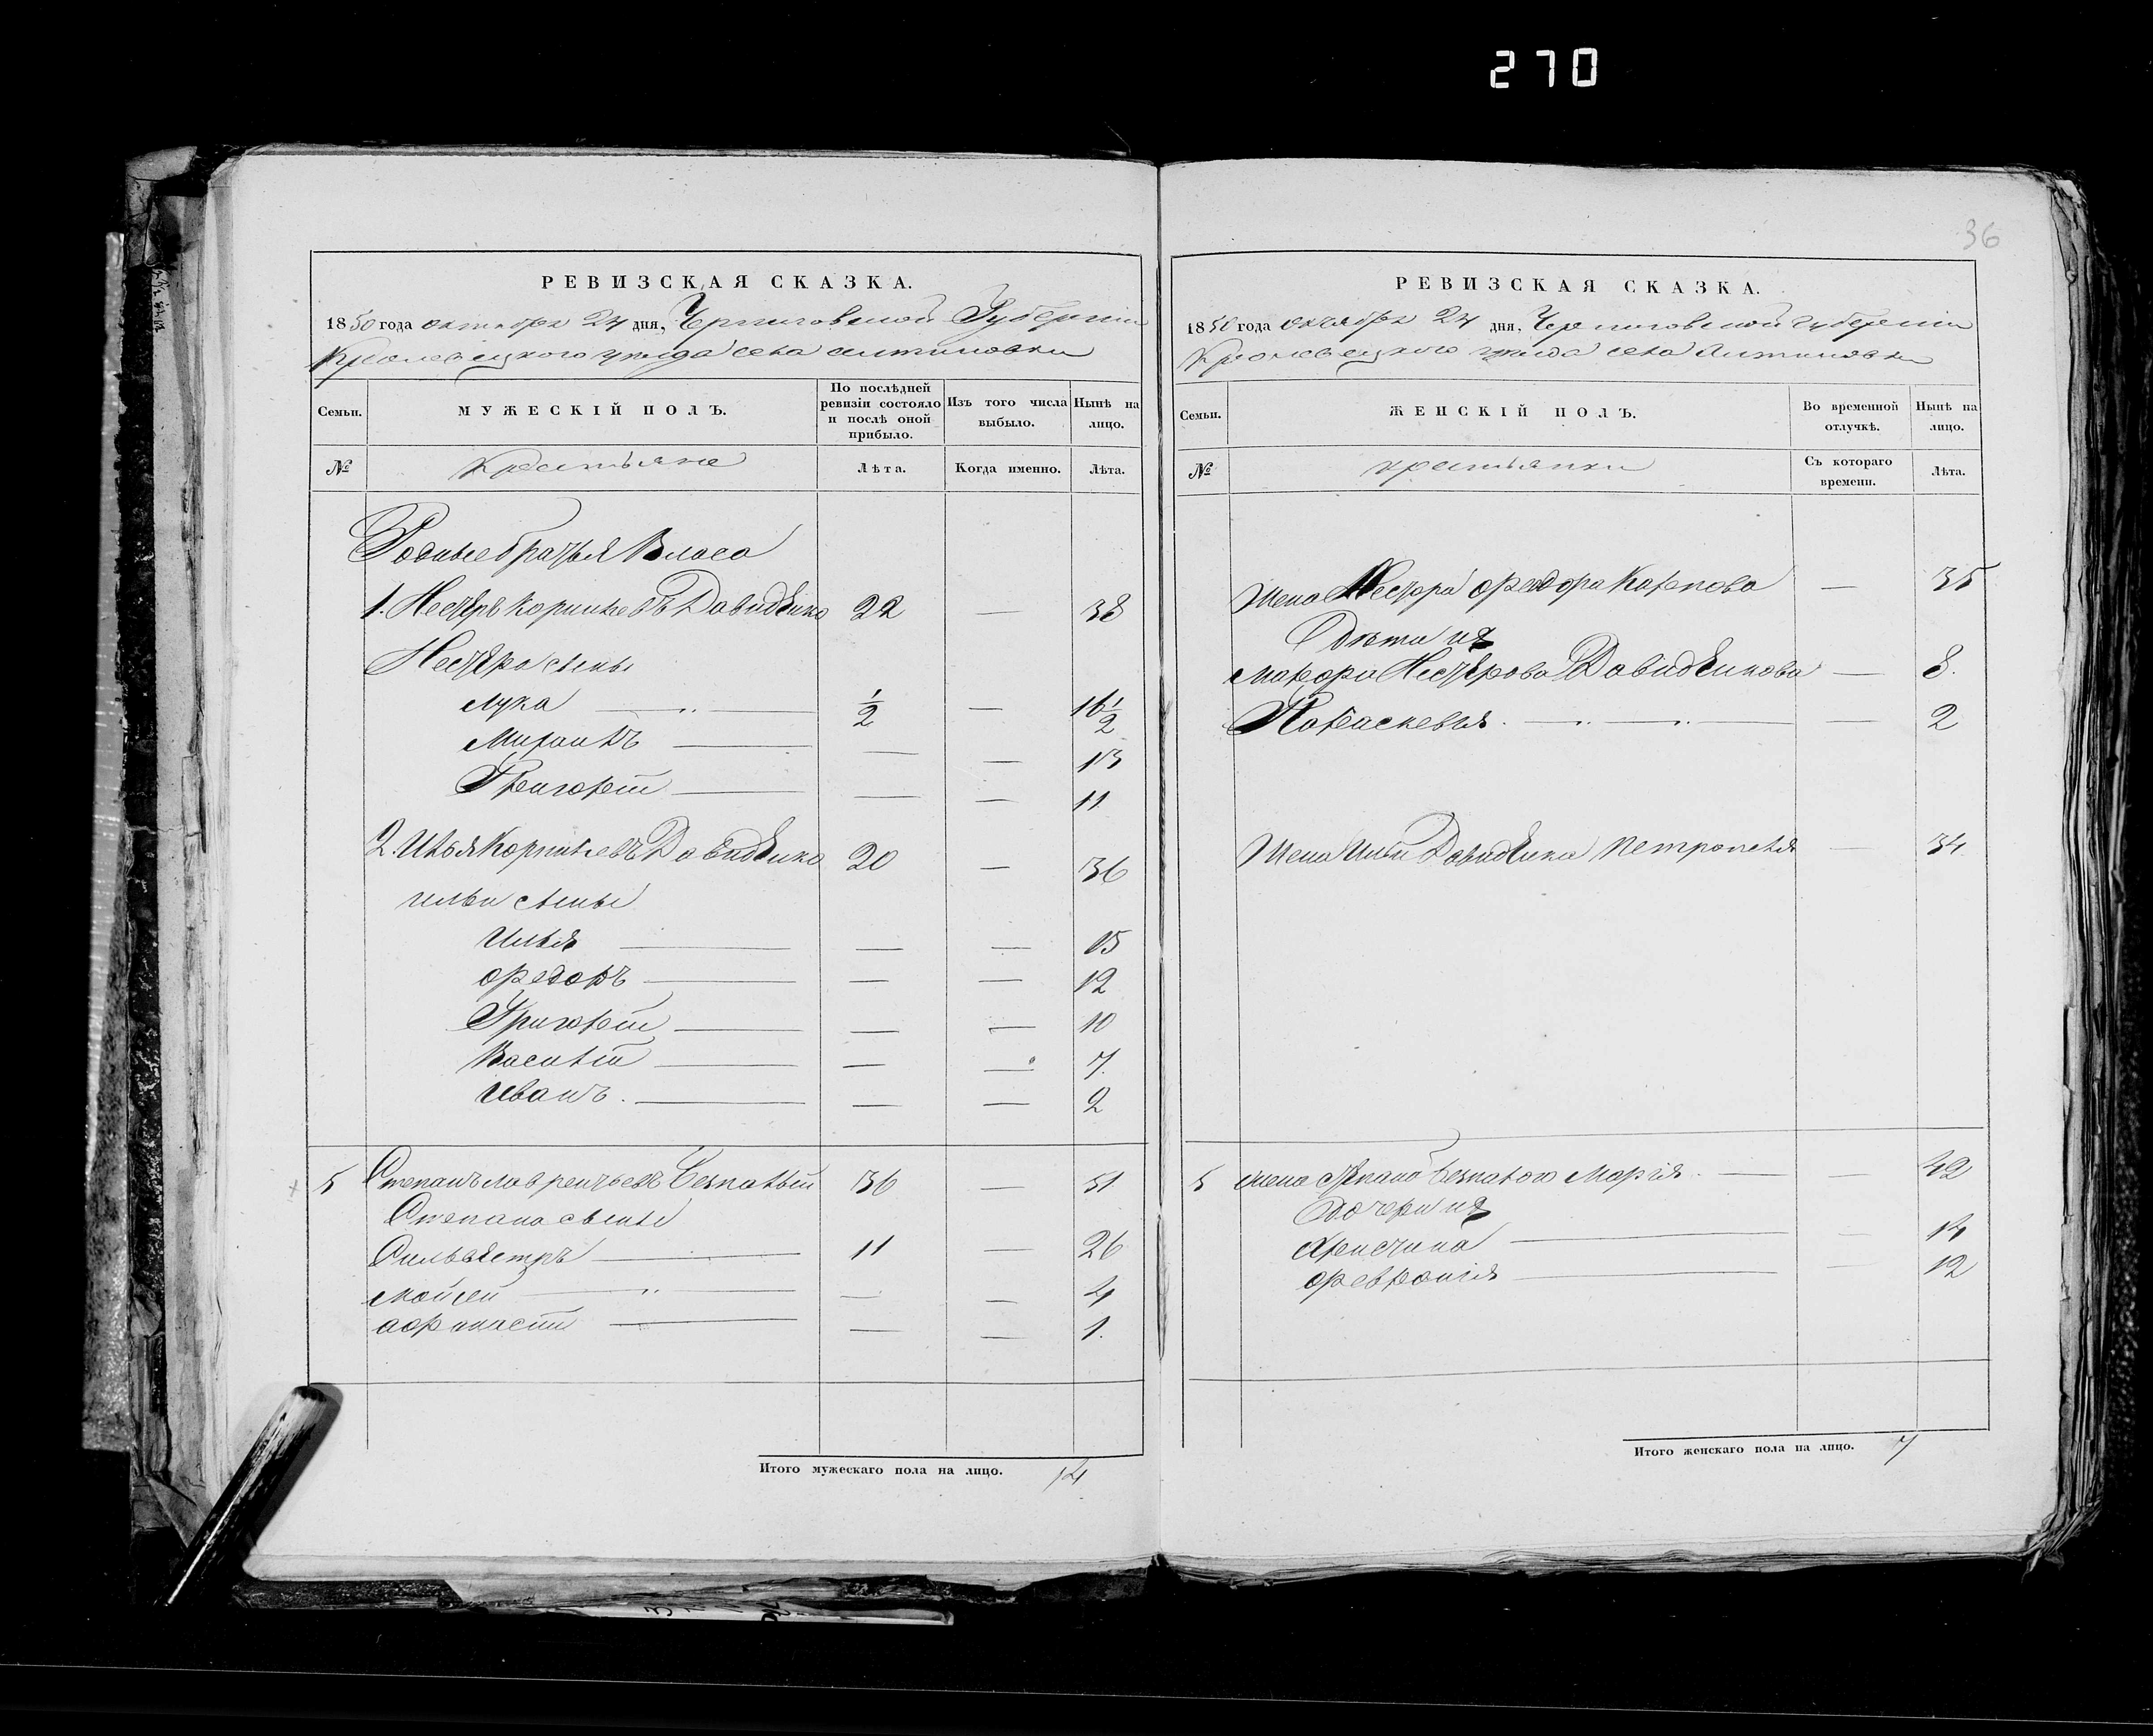 270
36
РЕВИЗСКАЯ СКАЗКА.
1850 года октября 24 дня, Черниговской Губерніи
Кролевецкого уезда села Алтиновки
Семьи.
МУЖЕСКІЙ ПОЛЪ.
По послѣдней ревизіи состояло и послѣ оной прибыло.
Изъ того числа выбыло.
Нынѣ на лицо.
№
Крестьяне
Лѣта.
Когда именно.
Лѣта.
Родные братья Власа
1. Нестеръ Корниевъ Давиденко 22 — 38
Нестера сыны
Лука — „ — ½ — 16½
Михаилъ — — — 13
Григорій — — — 11
2. Илья Корниевъ Давиденко 20 — 36
Ильи сыны
Илья — — — 15
Федоръ — — — 12
Григорій — — — 10
Василій — — — 7.
Иванъ. — — — 2
5 Степанъ Лаврентьевъ Безпалый 36 — 51
Степана сыны
Сильвестръ — 11 — 26
Мойсей — „ — — — 4
Афанасій — — — 1.
Итого мужескаго пола на лицо. 14
РЕВИЗСКАЯ СКАЗКА.
1850 года Октября 24 дня, Черниговской Губерніи
Кролевецкого уезда села Алтиновки
Семьи.
ЖЕНСКІЙ ПОЛЪ.
Во временной отлучкѣ.
Нынѣ на лицо.
№
крестьянки
Съ котораго времени.
Лѣта.
Жена Нестера Федора Карпова — 35
Дѣти их
Марфа Нестерова Давиденкова — 8.
Параскевія. — „ — „ — 2
Жена Ильи Давиденка Петронелія — 34
5 жена Степана Безпалого Марія. — — 42
Дочери их
Христина — — 14
Февронія — — 12
Итого женскаго пола на лицо. 7